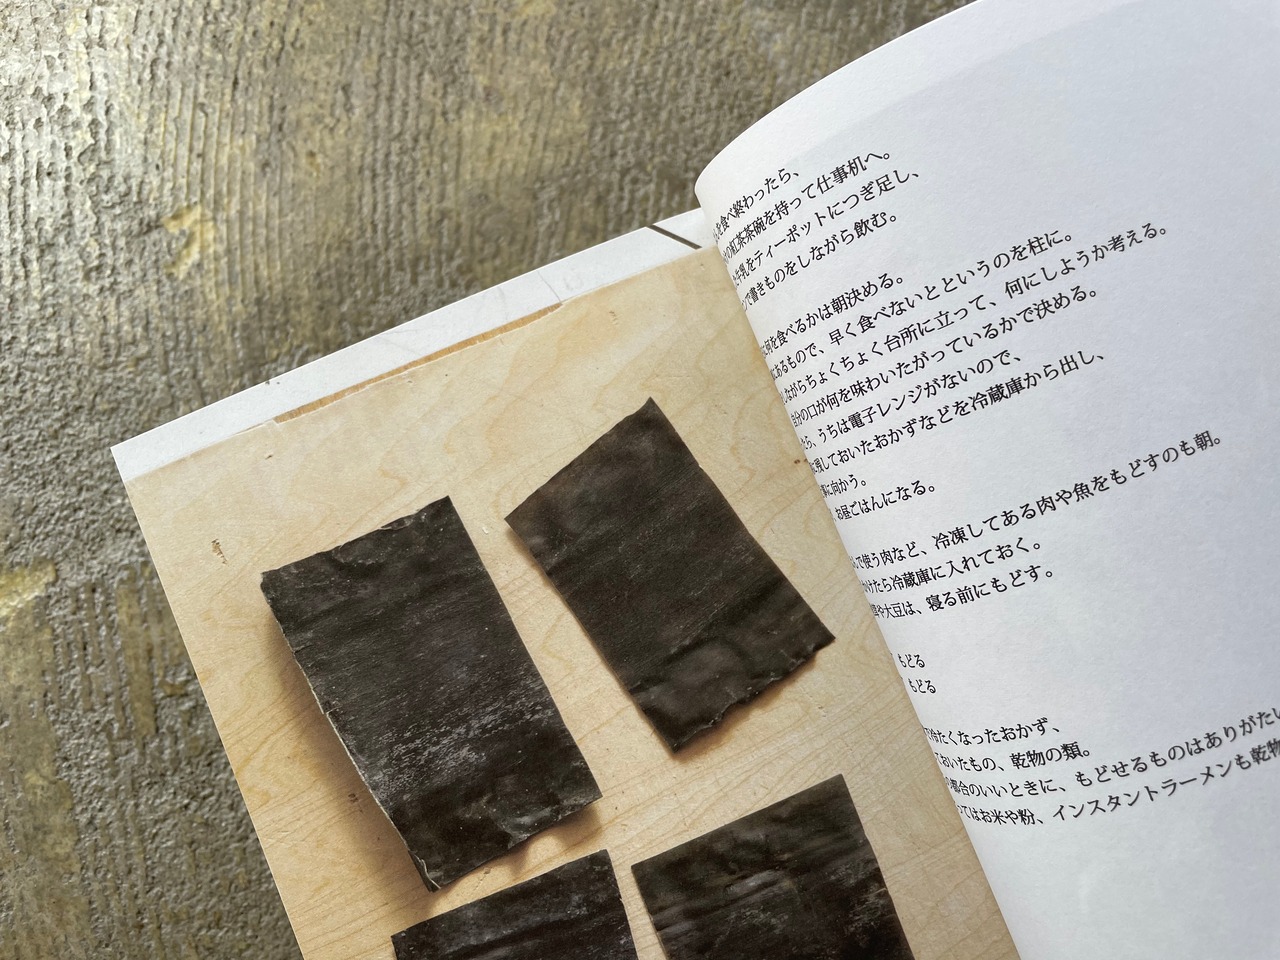 を食べ終わったら、
の紅茶茶碗を持って仕事机へ。
牛乳をティーポットにつぎ足し、
で書きものをしながら飲む。
何を食べるかは朝決める。
にあるもので、早く食べないとというのを柱に。
しながらちょくちょく台所に立って、何にしようか考える。
自分の口が何を味わいたがっているかで決める。
たら、うちは電子レンジがないので、
に残しておいたおかずなどを冷蔵庫から出し、
に向かう。
お昼ごはんになる。
で使う肉など、冷凍してある肉や魚をもどすのも朝。
けたら冷蔵庫に入れておく。
や大豆は、寝る前にもどす。
もどる
もどる
冷たくなったおかず、
おいたもの、乾物の類。
都合のいいときに、もどせるものはありがたい
てはお米や粉、インスタントラーメンも乾物